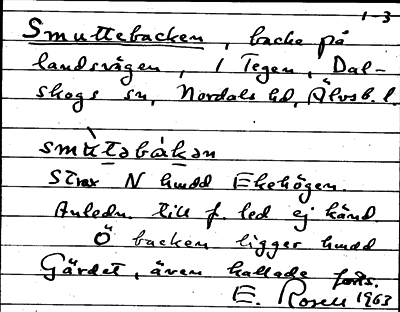 1-3
Smuttebacken, backe på
landsvägen, i Tegen, Dal-
skogs sn, Nordals hd, Älvsb. l.
smu̇̀tǝbákǝn
Strax N hmdd Ekehögen.
Anledn. till f. led ej känd.
Ö backen ligger hmdd
Gärdet, även kallade forts.
E. Rosell 1963